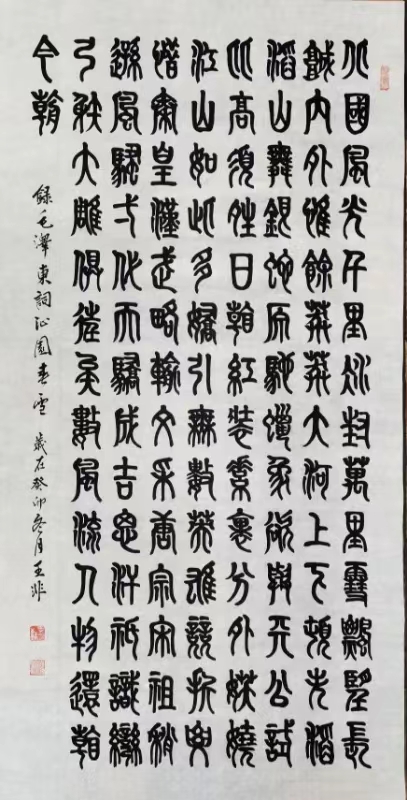 北國風光千里冰封萬里雪飄望長
城內外惟餘莽莽大河上下頓失滔
滔山舞銀蛇原馳蠟象欲與天公試
比高須晴日看紅裝素裹分外妖嬈
江山如此多嬌引無數英雄競折腰
惜秦皇漢武略輸文采唐宗宋祖稍
遜風騷一代天驕成吉思汗祇識彎
弓射大雕俱往矣數風流人物還看
今朝
錄毛澤東詞沁園春雪 歲在癸卯冬月王非